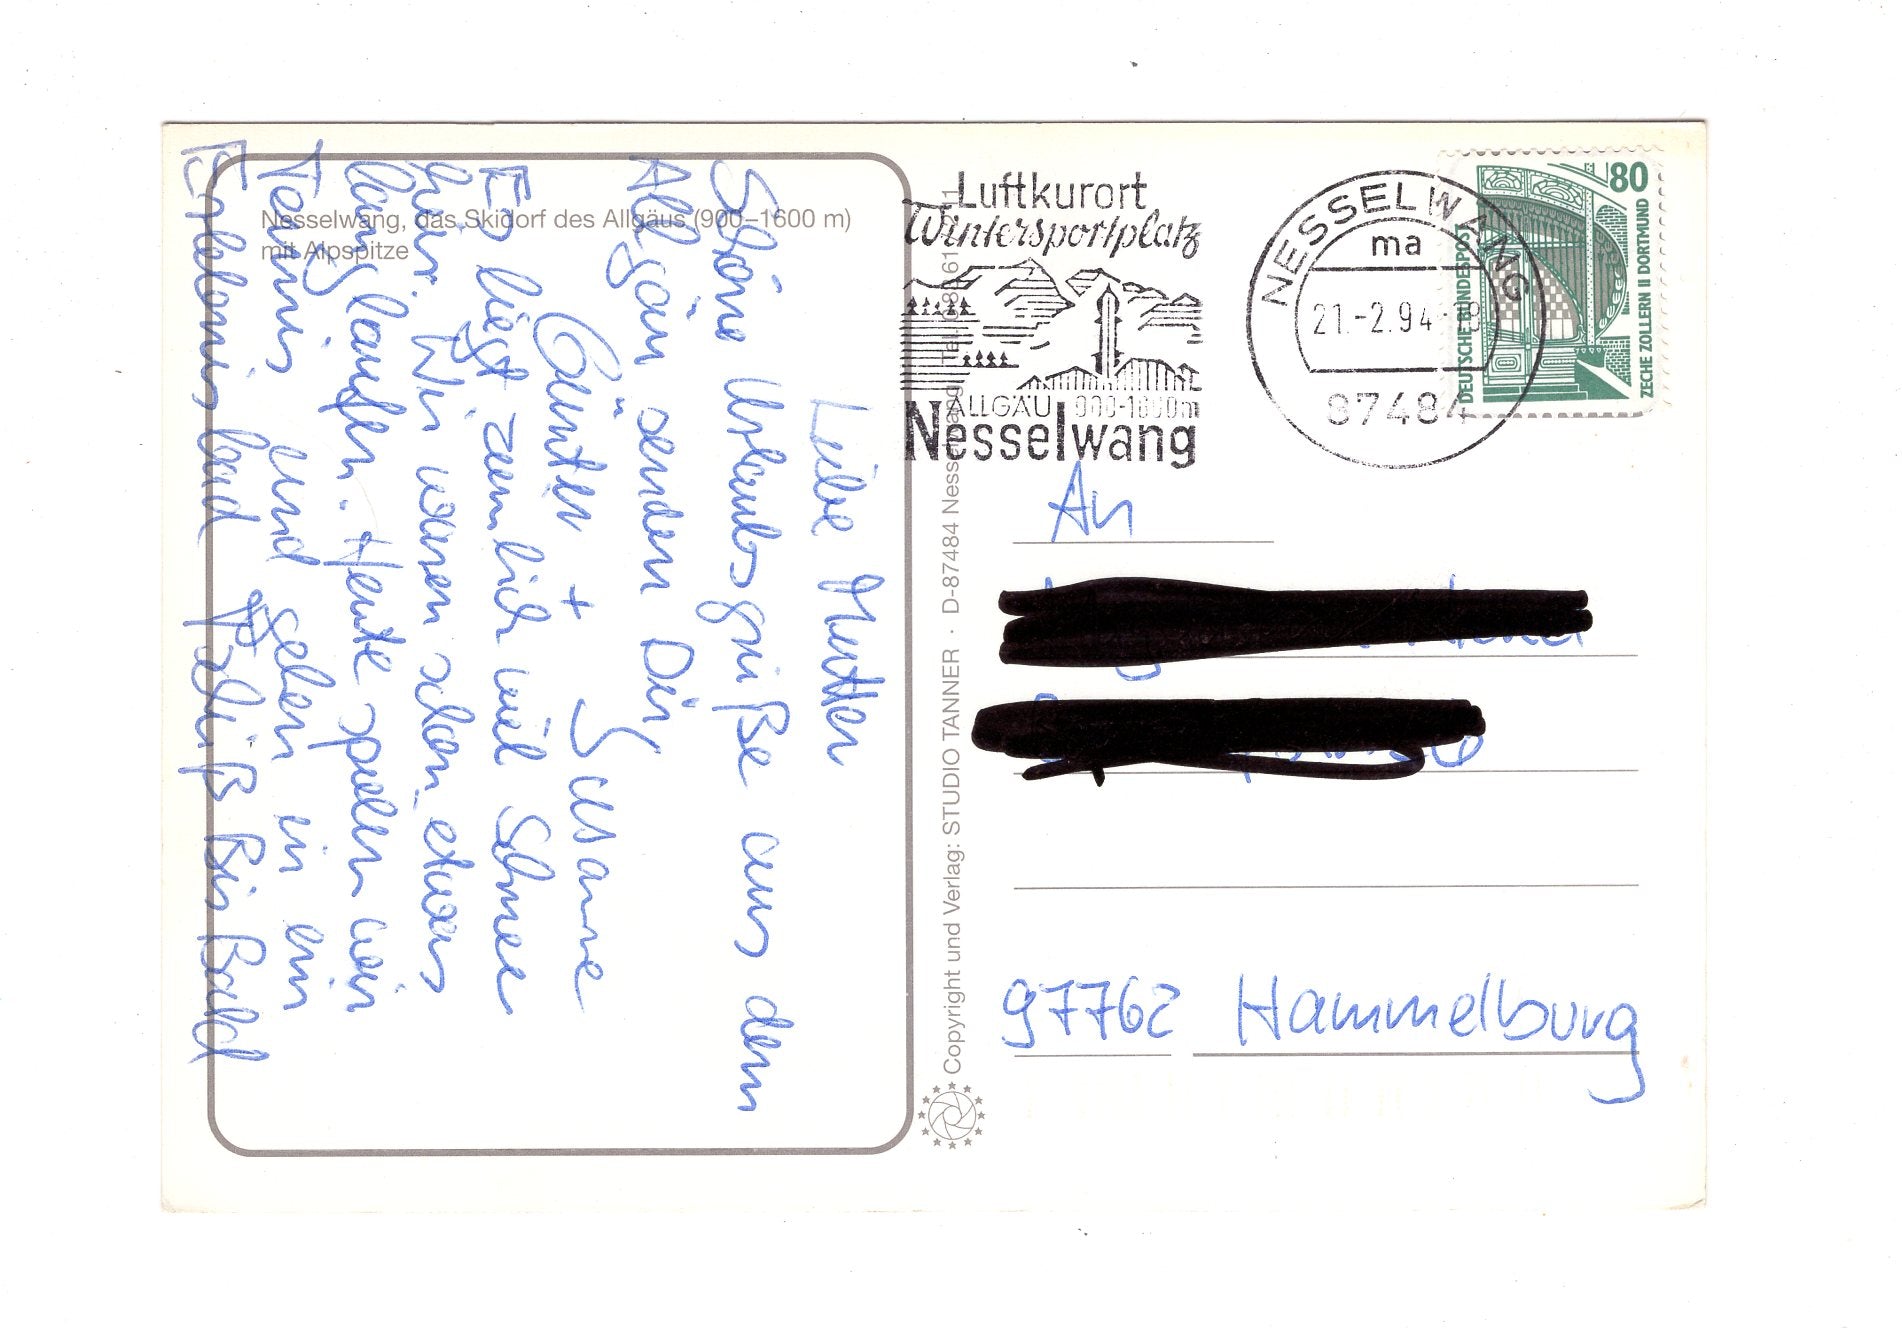 Nesselwang, das Skidorf des Allgäus (900–1600 m)
mit Alpspitze
Liebe Mutter
Schöne Urlaubsgrüße aus dem
Allgäu senden Dir
Günter + Susanne
Es liegt ziemlich viel Schnee
hier. Wir waren schon etwas
langlaufen. Heute spielen wir
Tennis und gehen in ein
Erlebnisbad. Tschüß Bis Bald
Copyright und Verlag: STUDIO TANNER · D-87484 Nesselwang
Luftkurort
Wintersportplatz
ALLGÄU 900-1600m
Nesselwang
NESSELWANG
ma
21.-2.94-18
87484
80
DEUTSCHE BUNDESPOST
ZECHE ZOLLERN II DORTMUND
An
97762 Hammelburg